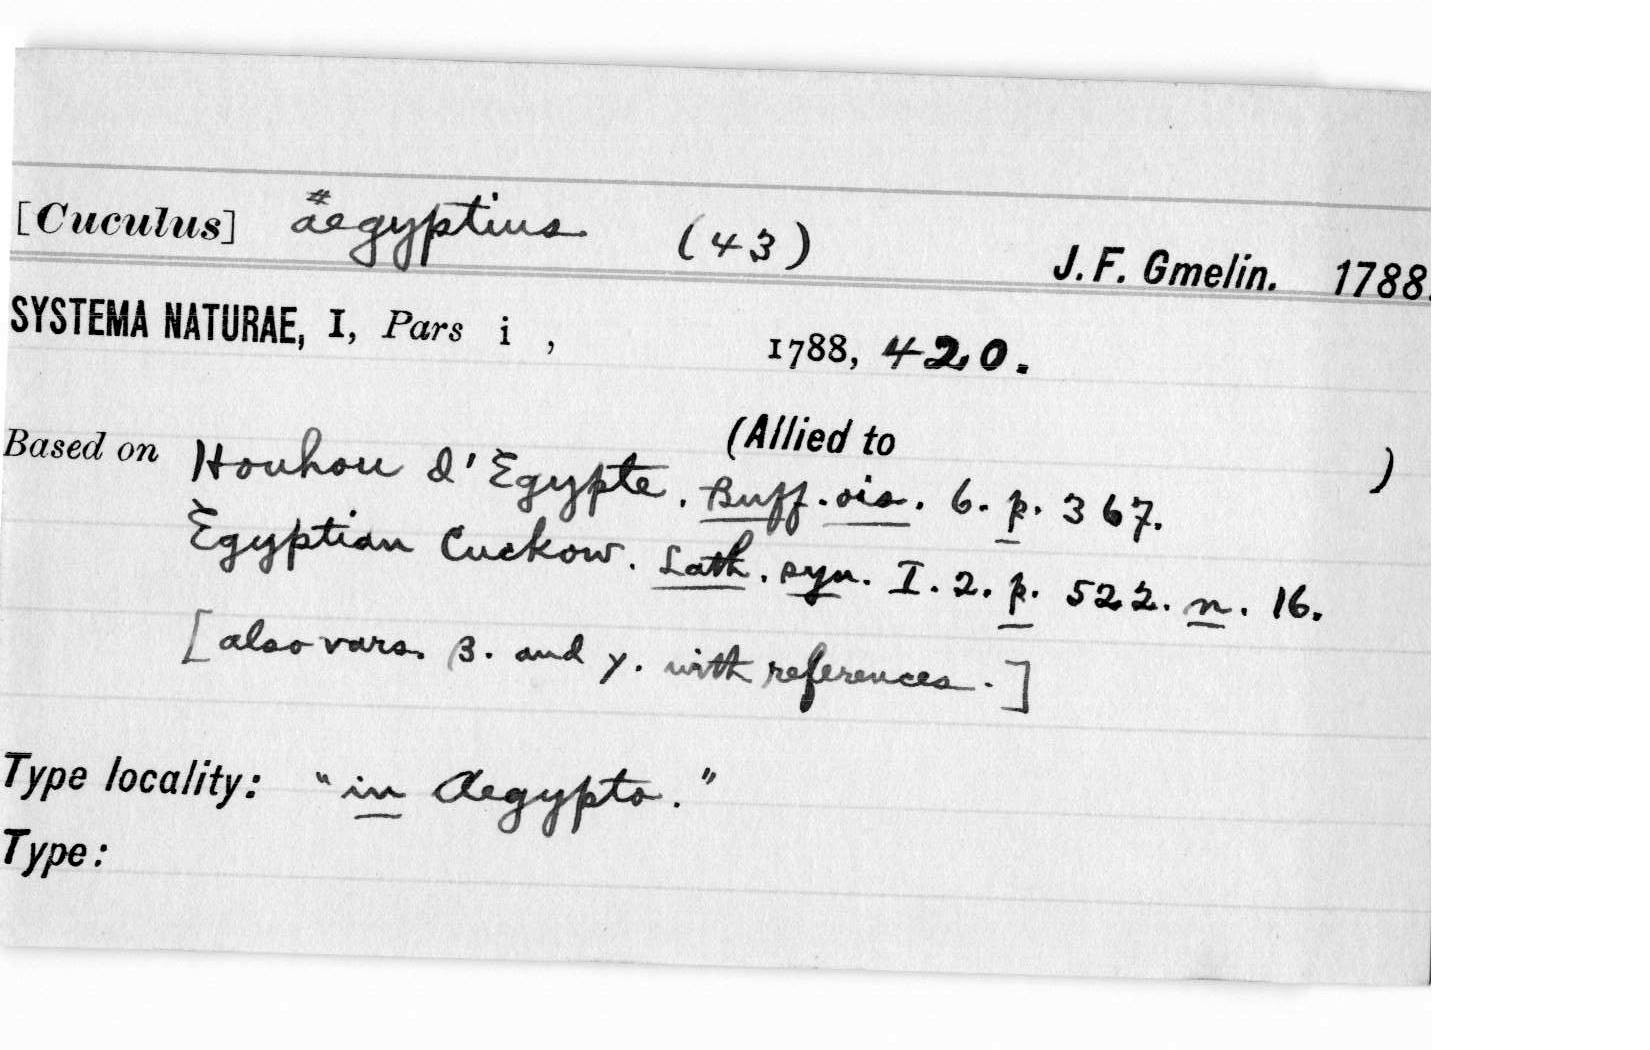 [Cuculus] #aegyptius (43) J. F. Gmelin. 1788.
SYSTEMA NATURAE, I, Pars i , 1788, 420.
(Allied to )
Based on Houhou d'Egypte. Buff. ois. 6. p. 367.
Egyptian Cuckow. Lath. syn. I. 2. p. 522. n. 16.
[also vars. β. and γ. with references.]
Type locality: "in Aegypto."
Type: